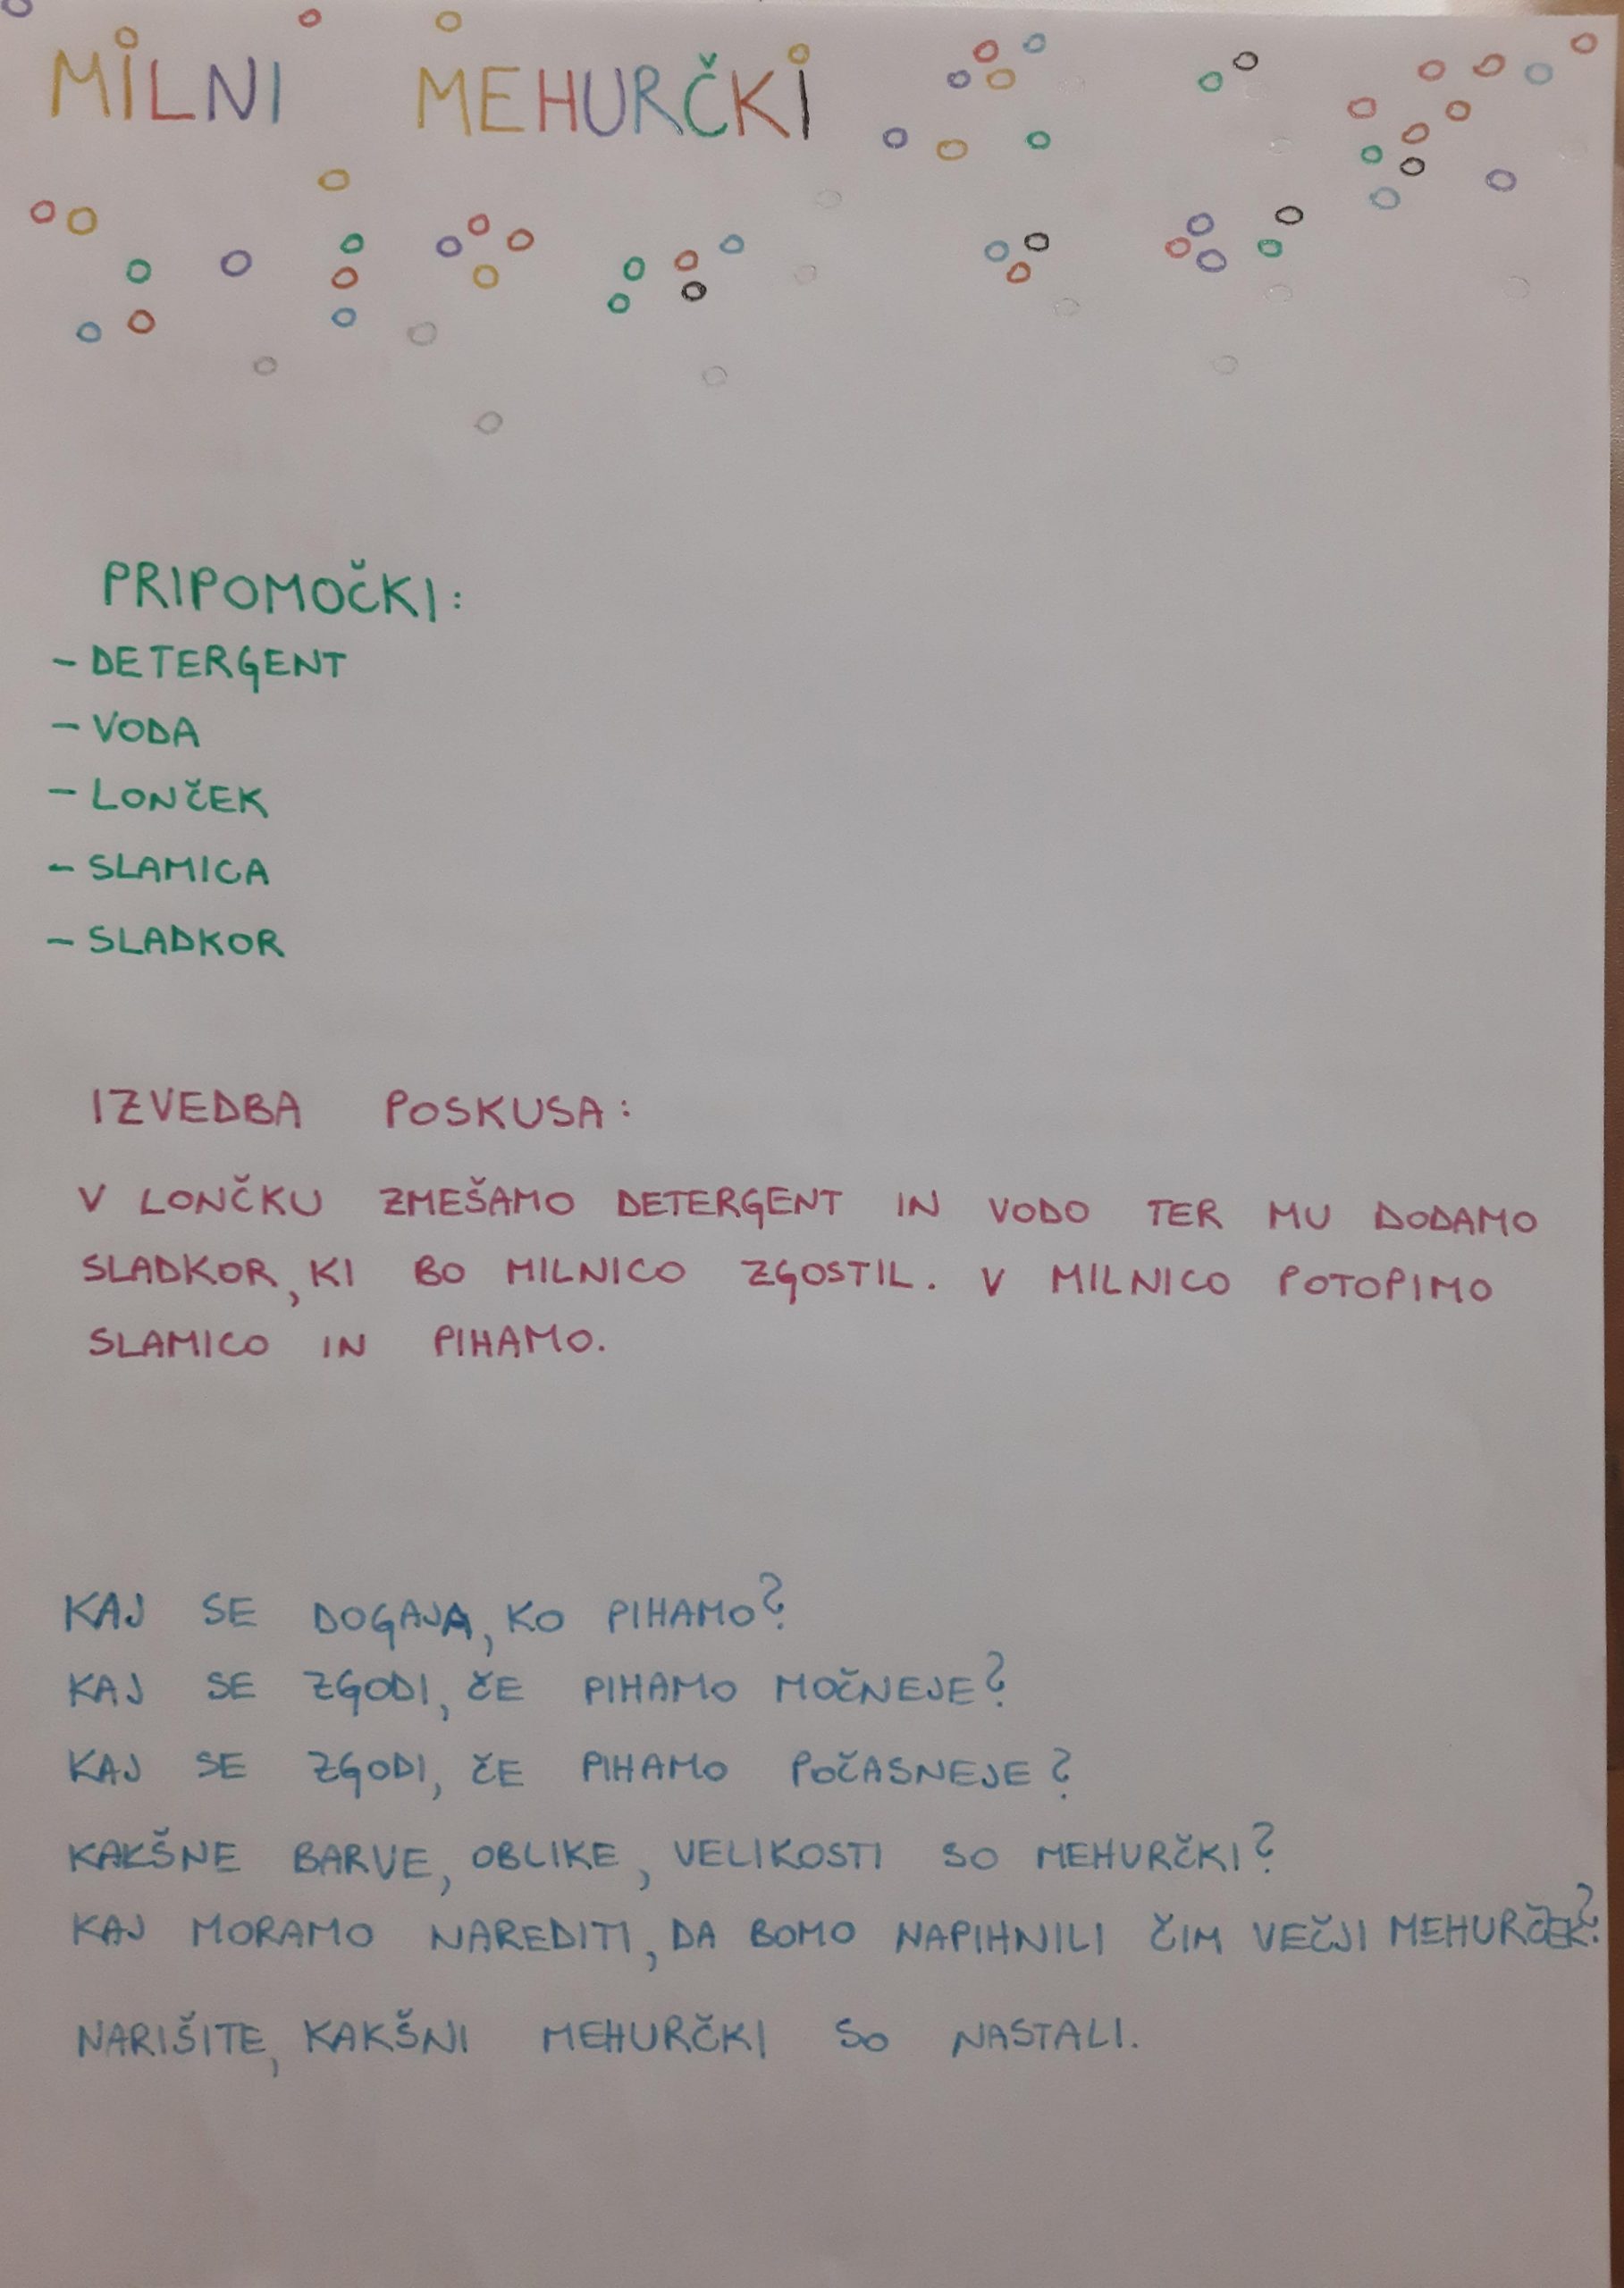 MILNI MEHURČKI
PRIPOMOČKI:
- DETERGENT
- VODA
- LONČEK
- SLAMICA
- SLADKOR
IZVEDBA POSKUSA:
V LONČKU ZMEŠAMO DETERGENT IN VODO TER MU DODAMO
SLADKOR, KI BO MILNICO ZGOSTIL. V MILNICO POTOPIMO
SLAMICO IN PIHAMO.
KAJ SE DOGAJA, KO PIHAMO?
KAJ SE ZGODI, ČE PIHAMO MOČNEJE?
KAJ SE ZGODI, ČE PIHAMO POČASNEJE?
KAKŠNE BARVE, OBLIKE, VELIKOSTI SO MEHURČKI?
KAJ MORAMO NAREDITI, DA BOMO NAPIHNILI ČIM VEČJI MEHURČEK?
NARIŠITE, KAKŠNI MEHURČKI SO NASTALI.